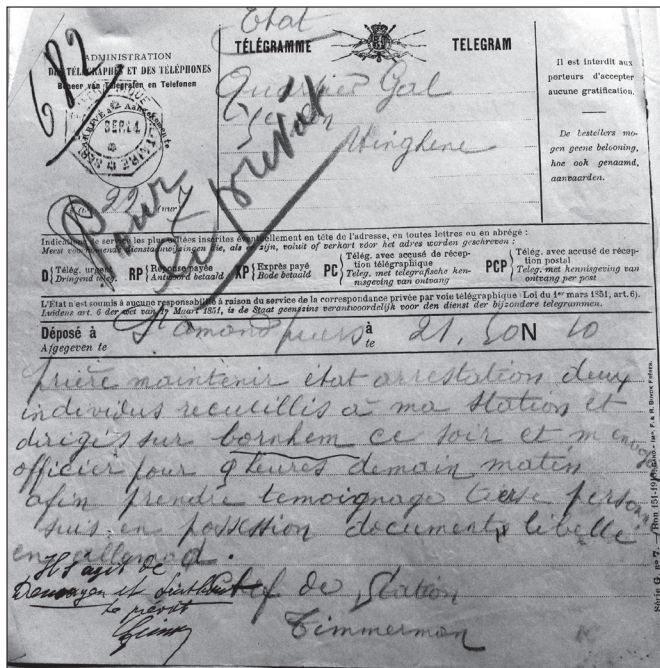 Etat
682
ADMINISTRATION
DES TÉLÉGRAPHES ET DES TÉLÉPHONES
Beheer van Telegrafen en Telefonen
TÉLÉGRAMME TELEGRAM
Il est interdit aux
porteurs d'accepter
aucune gratification.
De bestellers mo-
gen geene belooning,
hoe ook genaamd,
aanvaarden.
Quartier Gal
Winghene
Pour
22
Indications de service les plus usitées inscrites éventuellement en tête de l'adresse, en toutes lettres ou en abrégé :
Meest voorkomende dienstaanwijzingen die, als er zijn, voluit of verkort vóór het adres worden geschreven :
D Télég. urgent Dringend teleg. RP Réponse payée Antwoord betaald XP Exprès payé Bode betaald PC Télég. avec accusé de réception télégraphique Teleg. met telegrafische kennisgeving van ontvang PCP Télég. avec accusé de réception postal Teleg. met kennisgeving van ontvang per post
L'État n'est soumis à aucune responsabilité à raison du service de la correspondance privée par voie télégraphique (Loi du 1er mars 1851, art. 6).
Luidens art. 6 der wet van 1n Maart 1851, is de Staat geenszins verantwoordelijk voor den dienst der bijzondere telegrammen.
Déposé à St amand puers à 21, 50 N 10
Afgegeven te te
prière maintenir etat arrestation deux
individus recueillis à ma station et
dirigés sur bornhem ce soir et m envoyer
officier pour 9 heures demain matin
afin prendre temoignage tierse personne
suis en possession document libellé
en allemand.
Il s'agit de
chef de station
Timmerman
Série G, no 7.